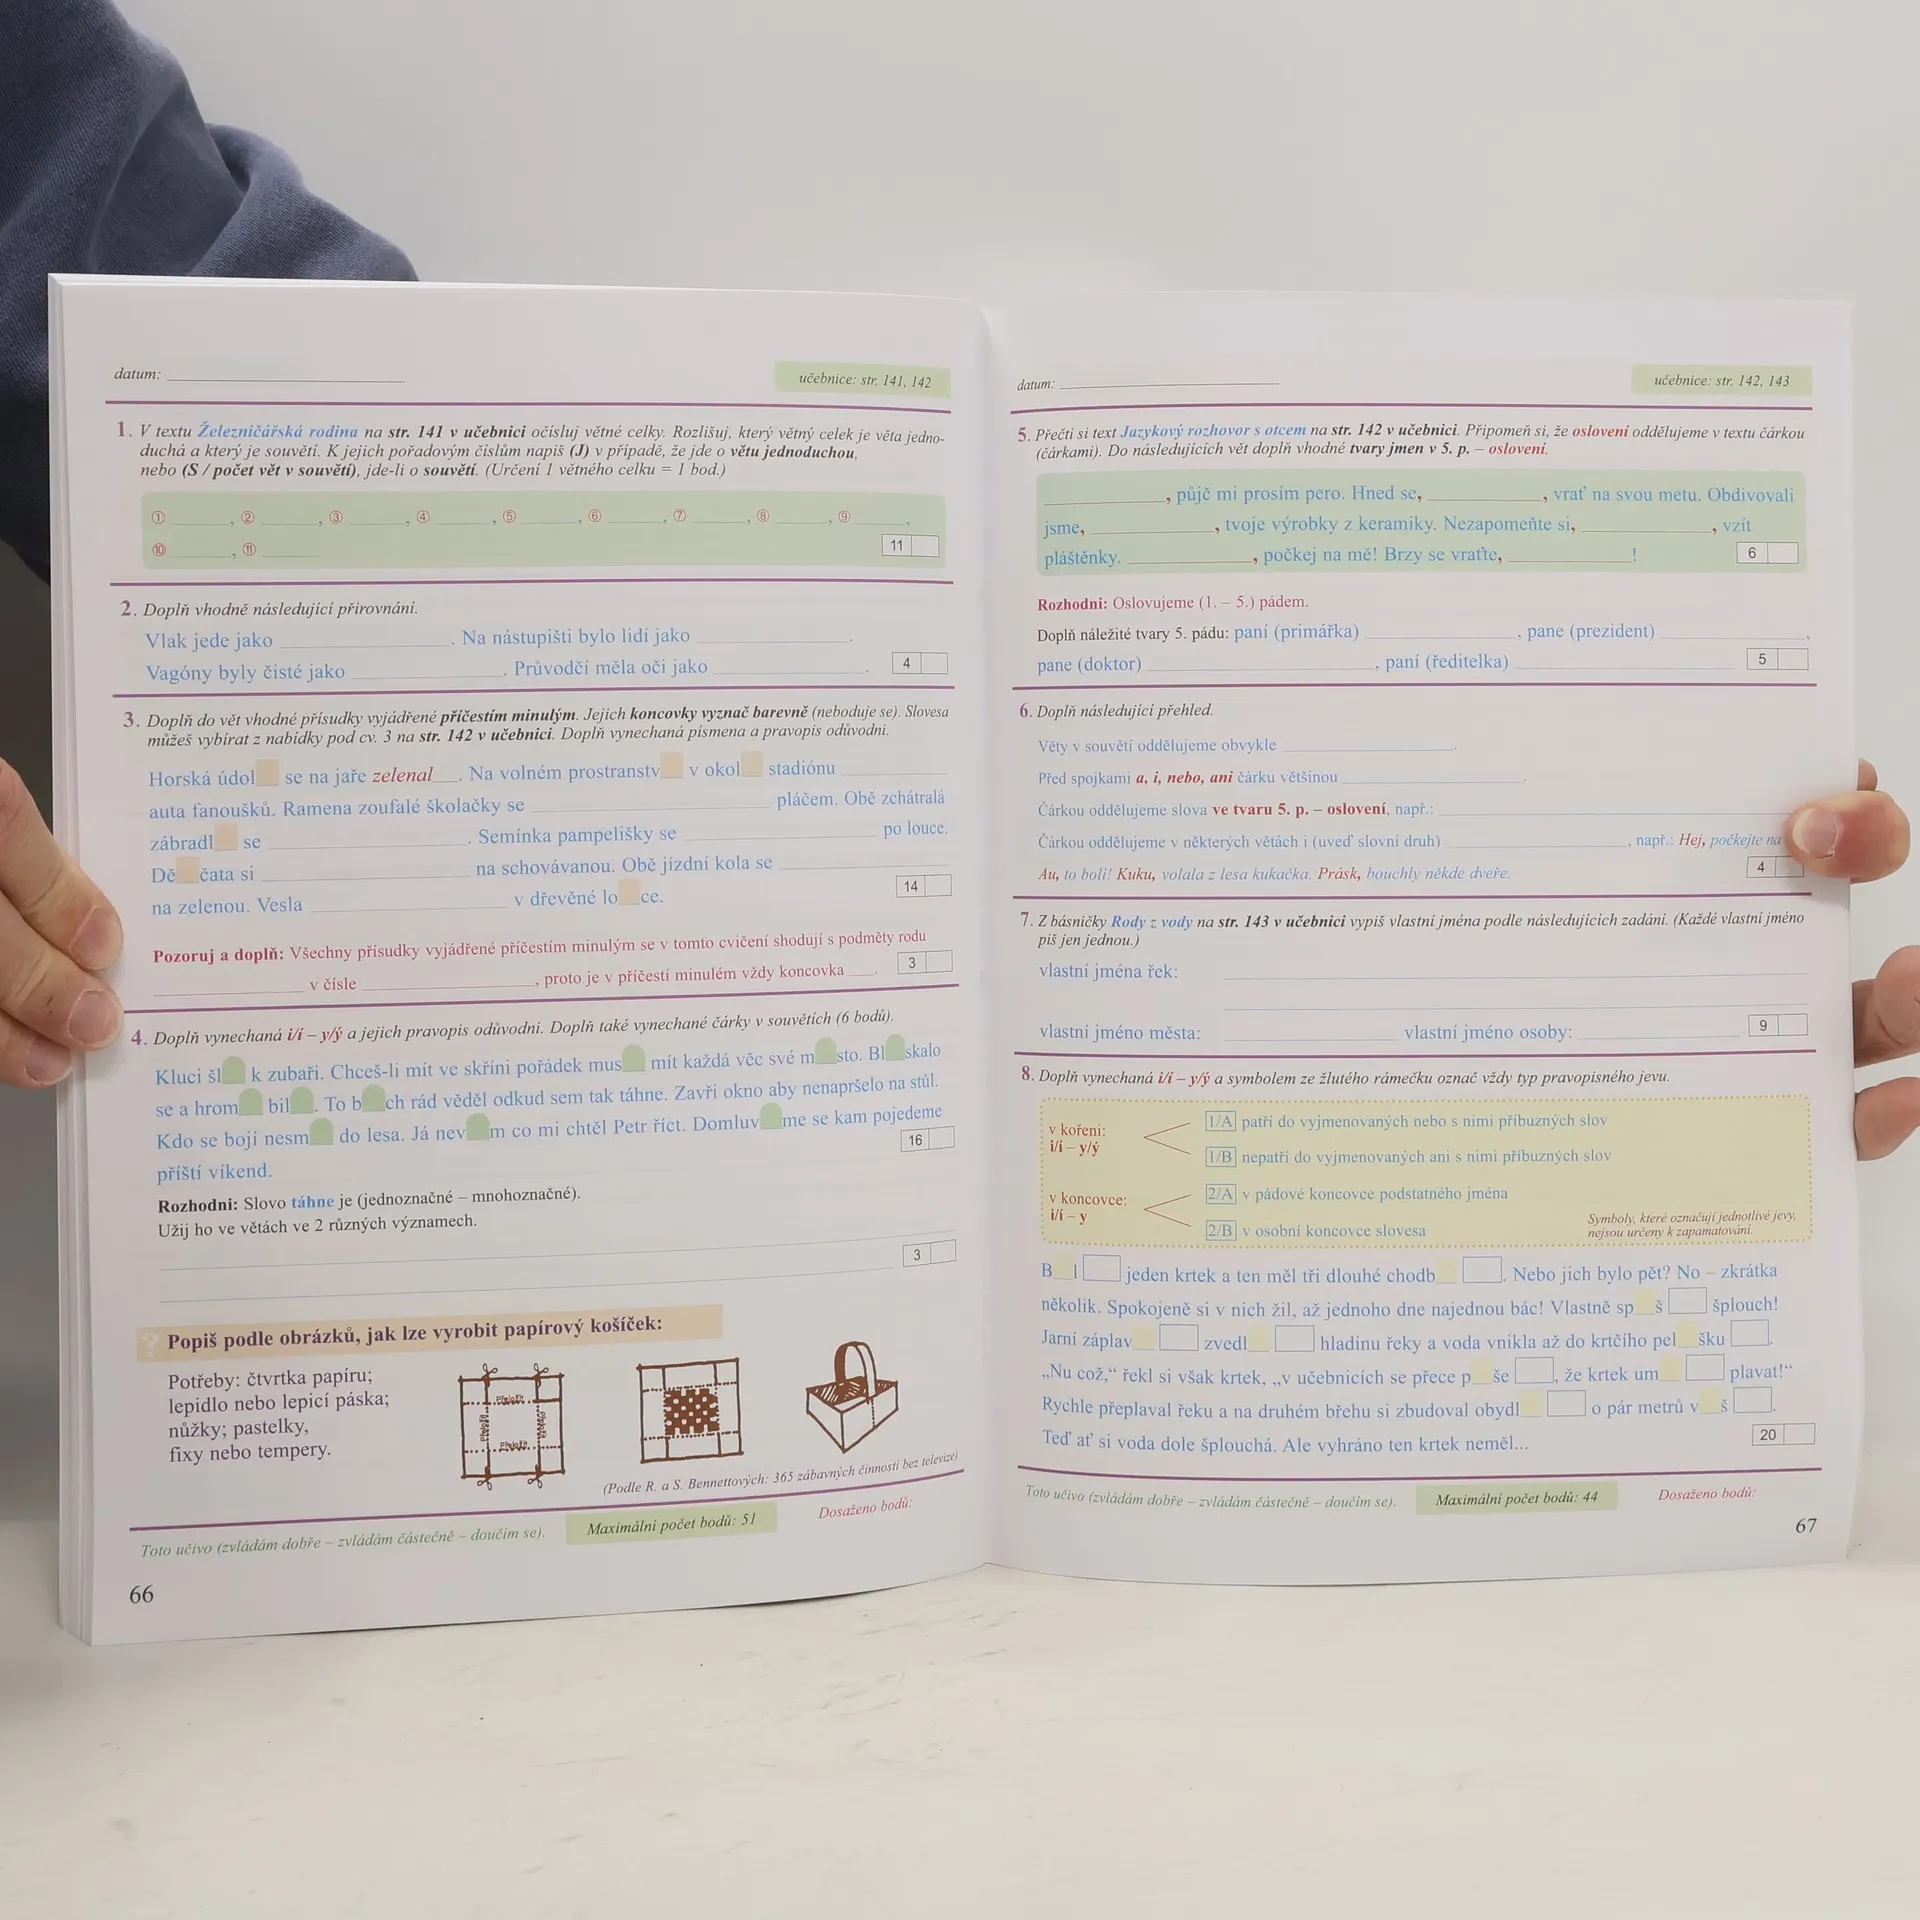 datum:
učebnice: str. 141, 142
1. V textu Železničářská rodina na str. 141 v učebnici očísluj větné celky. Rozlišuj, který větný celek je věta jedno-
duchá a který je souvětí. K jejich pořadovým číslům napiš (J) v případě, že jde o větu jednoduchou,
nebo (S / počet vět v souvětí), jde-li o souvětí. (Určení 1 větného celku = 1 bod.)
① ______, ② ______, ③ ______, ④ ______, ⑤ ______, ⑥ ______, ⑦ ______, ⑧ ______, ⑨ ______,
⑩ ______, ⑪ ______ 11
2. Doplň vhodně následující přirovnání.
Vlak jede jako ______. Na nástupišti bylo lidí jako ______.
Vagóny byly čisté jako ______. Průvodčí měla oči jako ______. 4
3. Doplň do vět vhodné přísudky vyjádřené příčestím minulým. Jejich koncovky vyznač barevně (neboduje se). Slovesa
můžeš vybírat z nabídky pod cv. 3 na str. 142 v učebnici. Doplň vynechaná písmena a pravopis odůvodni.
Horská údol__ se na jaře zelenal__. Na volném prostranstv__ v okol__ stadiónu ______
auta fanoušků. Ramena zoufalé školačky se ______ pláčem. Obě zchátralá
zábradl__ se ______. Semínka pampelišky se ______ po louce.
Dě__čata si ______ na schovávanou. Obě jízdní kola se ______
na zelenou. Vesla ______ v dřevěné lo__ce. 14
Pozoruj a doplň: Všechny přísudky vyjádřené příčestím minulým se v tomto cvičení shodují s podměty rodu
______ v čísle ______, proto je v příčestí minulém vždy koncovka ___. 3
4. Doplň vynechaná i/í – y/ý a jejich pravopis odůvodni. Doplň také vynechané čárky v souvětích (6 bodů).
Kluci šl__ k zubaři. Chceš-li mít ve skříni pořádek mus__ mít každá věc své m__sto. Bl__skalo
se a hrom__ bil__. To b__ch rád věděl odkud sem tak táhne. Zavři okno aby nenapršelo na stůl.
Kdo se bojí nesm__ do lesa. Já nev__m co mi chtěl Petr říct. Domluv__me se kam pojedeme
příští víkend. 16
Rozhodni: Slovo táhne je (jednoznačné – mnohoznačné).
Užij ho ve větách ve 2 různých významech.
3
? Popiš podle obrázků, jak lze vyrobit papírový košíček:
Potřeby: čtvrtka papíru;
lepidlo nebo lepicí páska;
nůžky; pastelky,
fixy nebo tempery.
Přeložit
Přeložit
Přeložit
Přeložit
(Podle R. a S. Bennettových: 365 zábavných činností bez televize)
Toto učivo (zvládám dobře – zvládám částečně – doučím se).
Maximální počet bodů: 51
Dosaženo bodů:
66
datum:
učebnice: str. 142, 143
5. Přečti si text Jazykový rozhovor s otcem na str. 142 v učebnici. Připomeň si, že oslovení oddělujeme v textu čárkou
(čárkami). Do následujících vět doplň vhodné tvary jmen v 5. p. – oslovení.
______, půjč mi prosím pero. Hned se, ______, vrať na svou metu. Obdivovali
jsme, ______, tvoje výrobky z keramiky. Nezapomeňte si, ______, vzít
pláštěnky. ______, počkej na mě! Brzy se vraťte, ______! 6
Rozhodni: Oslovujeme (1. – 5.) pádem.
Doplň náležité tvary 5. pádu: paní (primářka) ______, pane (prezident) ______,
pane (doktor) ______, paní (ředitelka) ______ 5
6. Doplň následující přehled.
Věty v souvětí oddělujeme obvykle ______.
Před spojkami a, i, nebo, ani čárku většinou ______.
Čárkou oddělujeme slova ve tvaru 5. p. – oslovení, např.: ______
Čárkou oddělujeme v některých větách i (uveď slovní druh) ______, např.: Hej, počkejte na
Au, to bolí! Kuku, volala z lesa kukačka. Prásk, bouchly někde dveře. 4
7. Z básničky Rody z vody na str. 143 v učebnici vypiš vlastní jména podle následujících zadání. (Každé vlastní jméno
piš jen jednou.)
vlastní jména řek:
vlastní jméno města: ______ vlastní jméno osoby: ______ 9
8. Doplň vynechaná i/í – y/ý a symbolem ze žlutého rámečku označ vždy typ pravopisného jevu.
v kořeni:
i/í – y/ý
1/A patří do vyjmenovaných nebo s nimi příbuzných slov
1/B nepatří do vyjmenovaných ani s nimi příbuzných slov
v koncovce:
i/í – y
2/A v pádové koncovce podstatného jména
2/B v osobní koncovce slovesa
Symboly, které označují jednotlivé jevy,
nejsou určeny k zapamatování.
B__l jeden krtek a ten měl tři dlouhé chodb__. Nebo jich bylo pět? No – zkrátka
několik. Spokojeně si v nich žil, až jednoho dne najednou bác! Vlastně sp__š šplouch!
Jarní záplav__ zvedl__ hladinu řeky a voda vnikla až do krtčího pel__šku.
„Nu což,“ řekl si však krtek, „v učebnicích se přece p__še, že krtek um__ plavat!“
Rychle přeplaval řeku a na druhém břehu si zbudoval obydl__ o pár metrů v__š.
Teď ať si voda dole šplouchá. Ale vyhráno ten krtek neměl... 20
Toto učivo (zvládám dobře – zvládám částečně – doučím se).
Maximální počet bodů: 44
Dosaženo bodů:
67